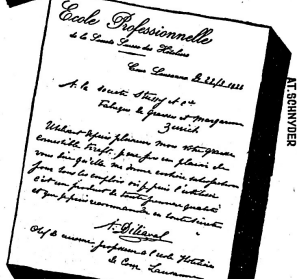 Ecole Professionnelle
de la Société Suisse des Hôteliers
Cour Lausanne le 22/3 1926
A la Société Stüssy & Cie
Fabrique de Graisses et Margarines
Zurich
Utilisant depuis plusieurs mois votre graisse
comestible j'ai le plaisir de
vous dire qu'elle me donne entière satisfaction
pour tous les emplois où je puis l'utiliser
c'est un produit de toute première qualité
et que je puis recommander en toute
Chef de cuisine, professeur à l'école Hôtelière
de Cour Lausanne
AT. SCHNYDER